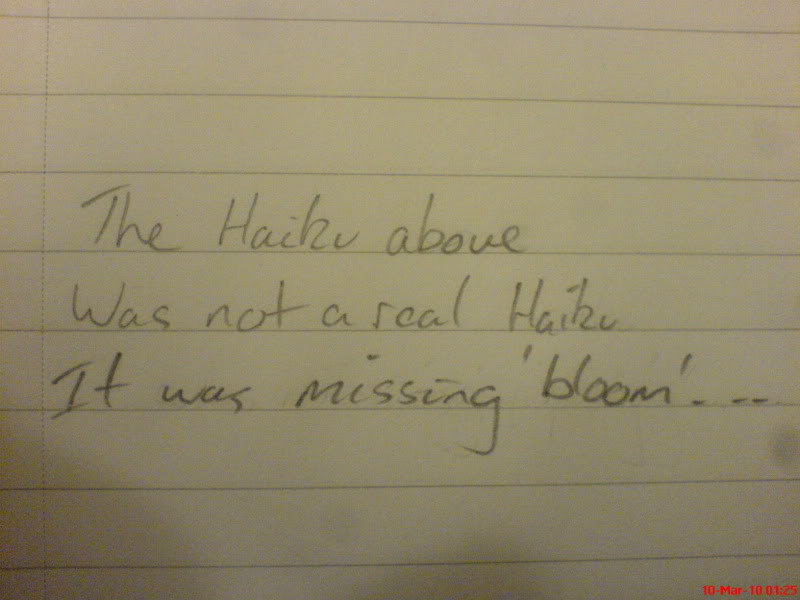 The Haiku above
Was not a real Haiku
It was missing 'bloom'...
10-Mar-10 01:25